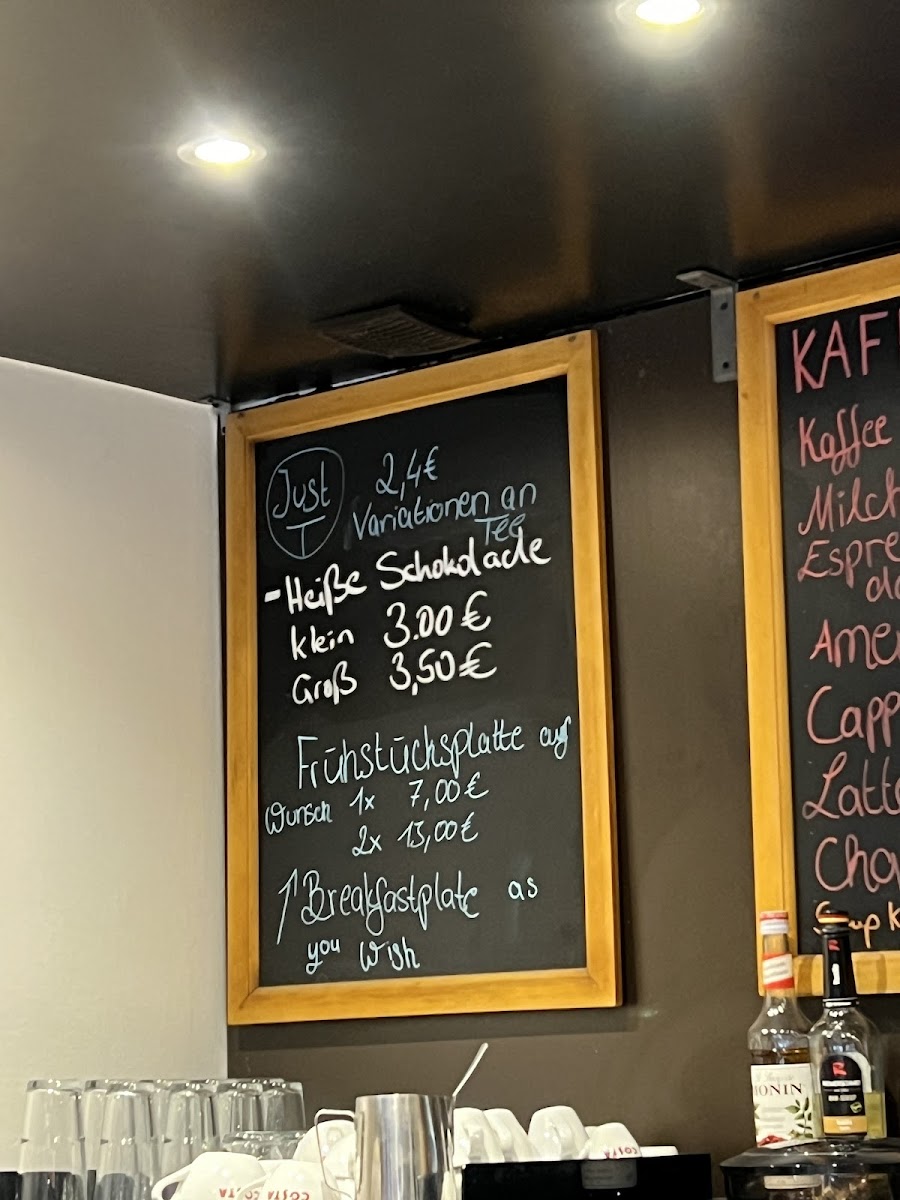 Just
T
2,4€
Variationen an
Tee
- Heiße Schokolade
klein 3.00 €
Groß 3,50 €
Frühstücksplatte auf
Wunsch 1x 7,00 €
2x 13,00 €
↑ Breakfastplate as
you Wish
KAF
Kaffee
Milch
Espre
Amer
Capp
Latte
Cha
MONIN
COSTA
COSTA
COSTA